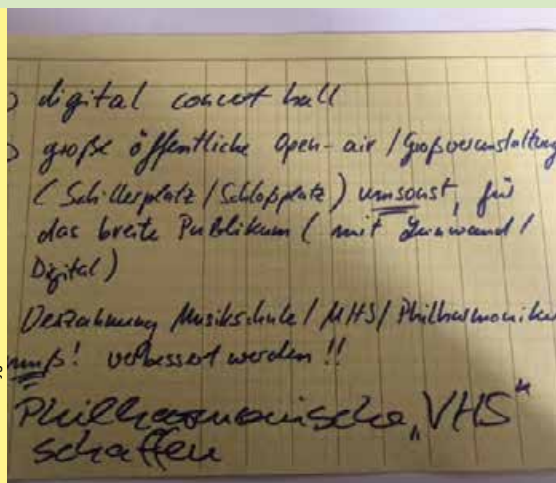 digital concert hall
große öffentliche Open-air / Großveranstaltung
(Schillerplatz / Schloßplatz) umsonst, für
das breite Publikum (mit Leinwand /
Digital)
Verzahnung Musikschule / MHS / Philharmoniker
muß! verbessert werden!!
Philharmonische „VHS“
schaffen